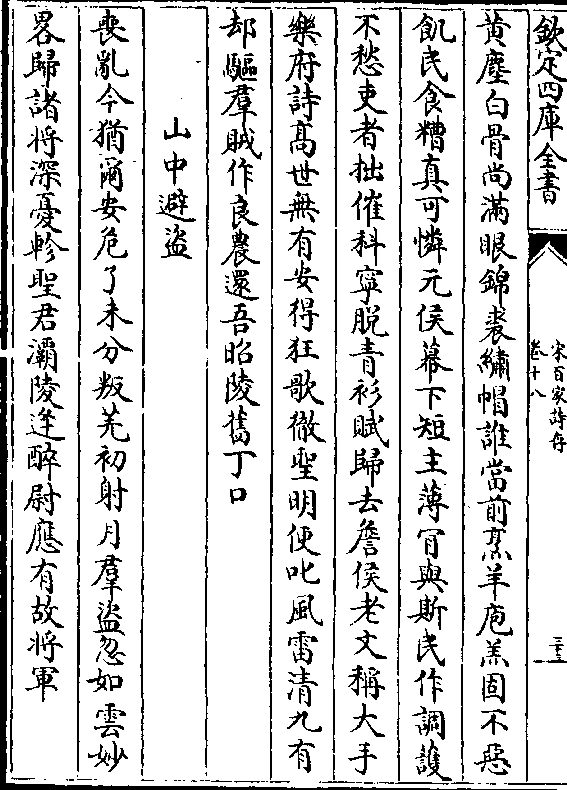 欽定四庫全書
宋百家詩存
卷十八
三十三
黃塵白骨尚滿眼錦裘繡帽誰當前烹羊庖羔固不惡
飢民食糟真可憐元侯幕下短主薄肎與斯民作調護
不愁吏者拙催科寧脫青衫賦歸去詹侯老文稱大手
樂府詩髙世無有安得狂歌徹聖明便叱風雷清九有
却驅羣賊作良農還吾昭陵舊丁口
山中避盜
喪亂今猶爾安危了未分叛羌初射月羣盜忽如雲妙
畧歸諸将深憂軫聖君灞陵逢醉尉應有故将軍